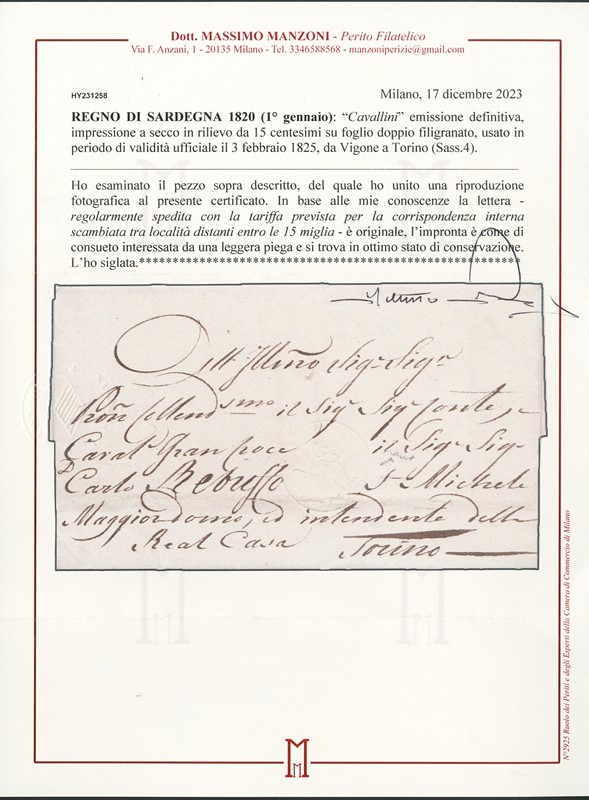 Dott. MASSIMO MANZONI - Perito Filatelico
Via F. Anzani, 1 - 20135 Milano - Tel. 3346588568 - manzoniperizie@gmail.com
HY231258
Milano, 17 dicembre 2023
REGNO DI SARDEGNA 1820 (1° gennaio): “Cavallini” emissione definitiva,
impressione a secco in rilievo da 15 centesimi su foglio doppio filigranato, usato in
periodo di validità ufficiale il 3 febbraio 1825, da Vigone a Torino (Sass.4).
Ho esaminato il pezzo sopra descritto, del quale ho unito una riproduzione
fotografica al presente certificato. In base alle mie conoscenze la lettera -
regolarmente spedita con la tariffa prevista per la corrispondenza interna
scambiata tra località distanti entro le 15 miglia - è originale, l’impronta è come di
consueto interessata da una leggera piega e si trova in ottimo stato di conservazione.
L’ho siglata.
All' Sig.r Sig.r
il Sig.r Sig.r Conte,
Gran Croce il Sig.r Sig.r
Carlo S. Michele
Maggiordomo, ed intendente della
Real Casa Torino
N°2925 Ruolo dei Periti e degli Esperti della Camera di Commercio di Milano
M